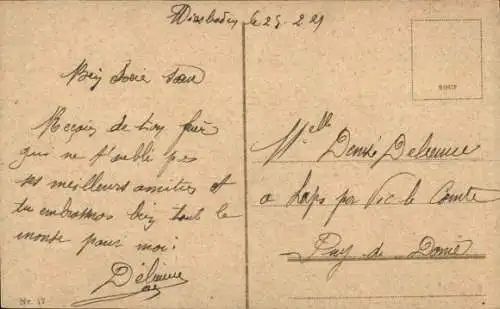 Wiesbaden le 25. 2. 21
Bien chère sœur
Reçois de ton frère
qui ne t'oublie pas
ses meilleurs amitiés et
tu embrasseras bien tout le
monde pour moi.
Delineuve
No. 17
Melle Denise Delineuve
a Laps par Vic le Comte
Puy de Dome